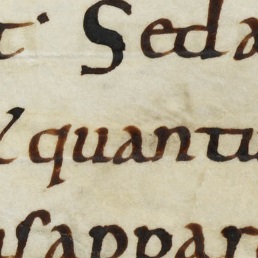 t. Sed a
quantu
sappar